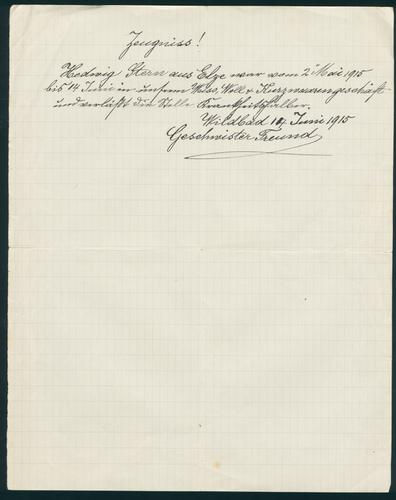 Zeugniss!
Hedwig Stern aus Elze war vom 2ᵗ Mai 1915
bis 14 Juni in unserm Weiss, Woll & Kurzwarengeschäft
und verläßt die Stelle Krankheitshalber.
Wildbad 14, Juni 1915
Geschwister Freund